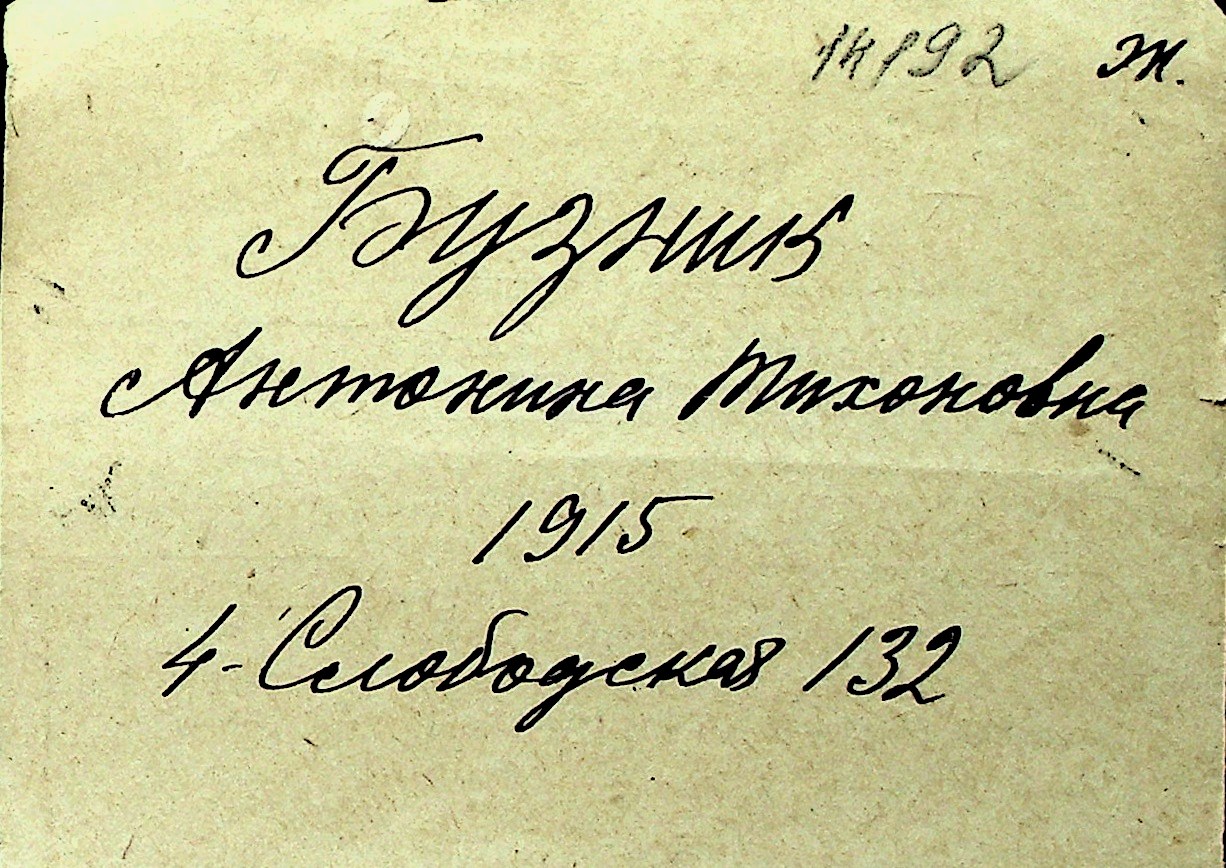 14192 ж.
Бузник
Антонина Тихоновна
1915
4-Слободская 132